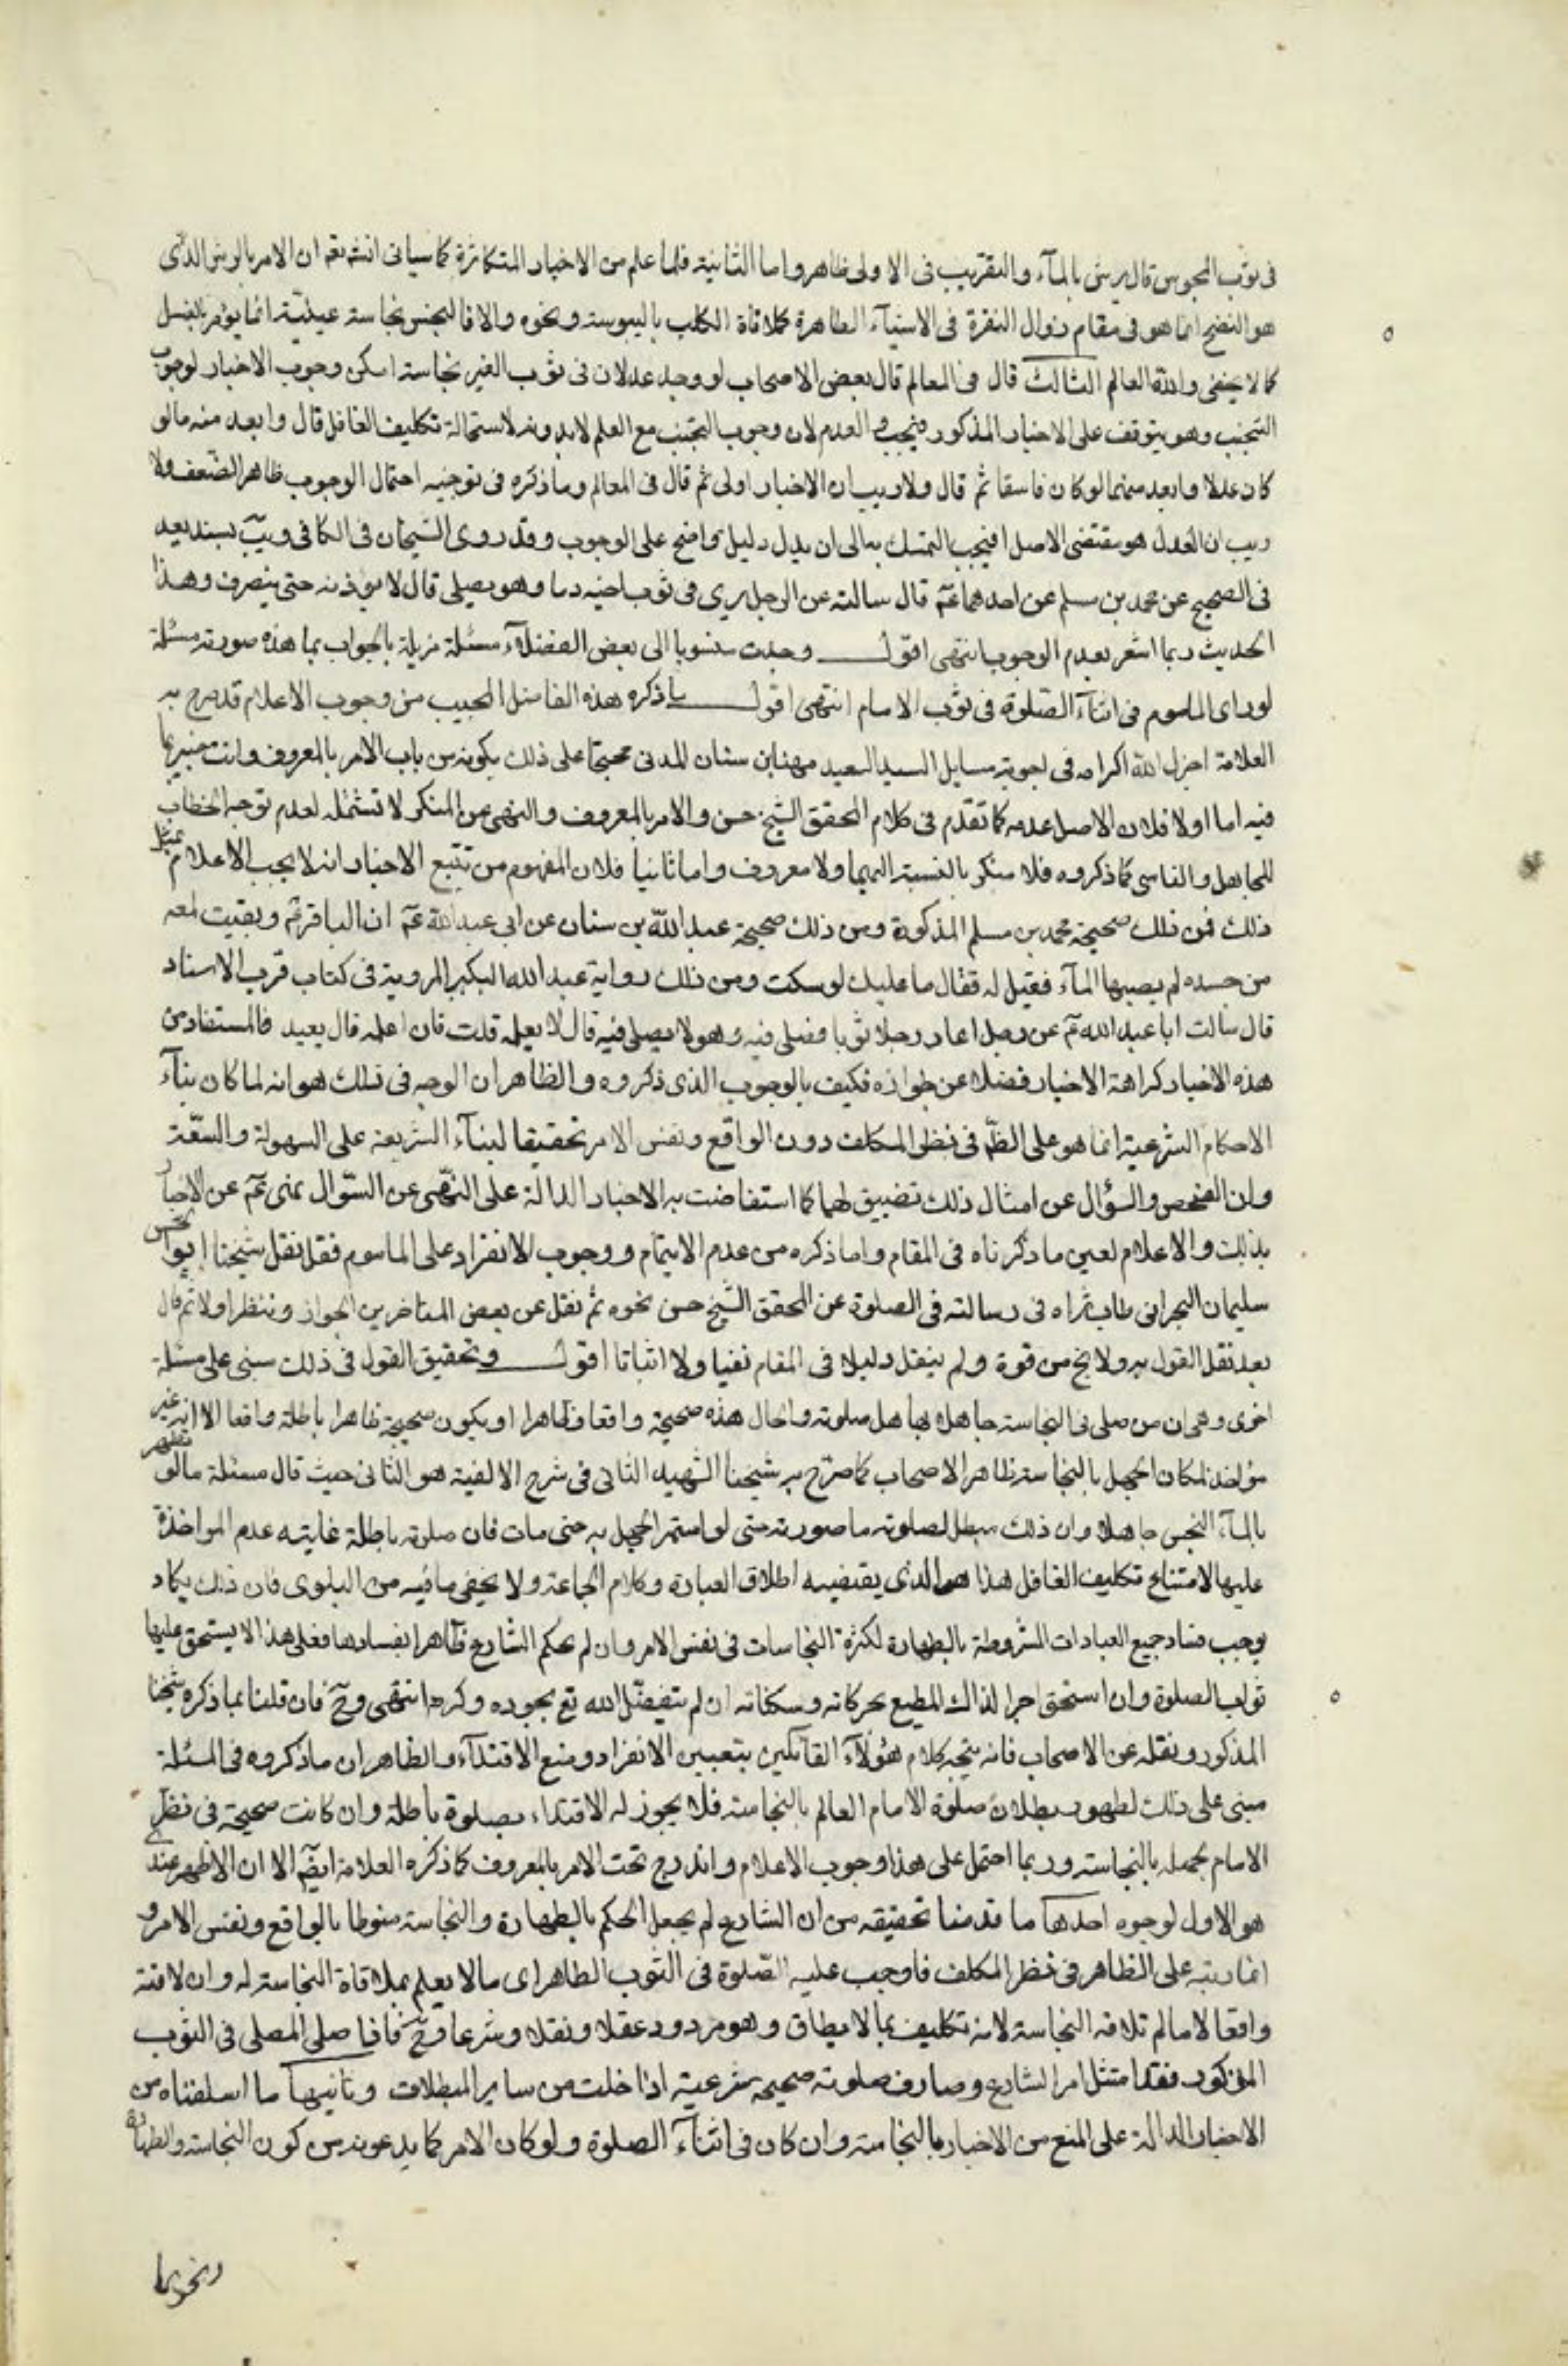 فى ثوب المجوس قال يرش بالمآء والتقريب فى الاولى ظاهر واما الثانية فلما علم من الاخبار المتكاثرة كما سياتى انشه تعه ان الامر بالرش الذى
هو النضح انما هو فى مقام زوال النفرة فى الاشيآء الطاهرة كملاقاة الكلب باليبوسة ونحوه والا فالنجس نجاسة عينيّة انما يؤمر بالغسل
كما لا يخفى والله العالم الثالث قال فى المعالم قال بعض الاصحاب لو وجد عدلان فى ثوب الغير نجاسة امكن وجوب الاخبار لوجوب
التجنب وهو يتوقف على الاخبار المذكور فيجب و العدم لان وجوب التجنب مع العلم لا بدونه لاستحالة تكليف الغافل قال وابعد منه مالو
كان عدلا وابعد منهما لو كان فاسقا ثم قال ولا ريب ان الاخبار اولى ثم قال فى المعالم وما ذكره فى توجيه احتمال الوجوب ظاهر الضّعف ولا
ريب ان العدل هو مقتضى الاصل فيجب التمسك به الى ان يدل دليل واضح على الوجوب وقد روى الشيخان فى الكافى ويب بسند يعد
فى الصحيح عن محمد بن مسلم عن احدهما عم قال سالته عن الرجل يرى فى ثوب اخيه دما وهو يصلى قال لا يؤذنه حتى ينصرف وهذا
الحديث ربما اشعر بعدم الوجوب انتهى اقول وجدت منسوبا الى بعض الفضلآء مسئلة مزيلة بالجواب بما هذه صورته مسئلة
لو راى الماموم فى اثنآء الصّلوة فى ثوب الامام انتهى اقول ما ذكره هذه الفاضل المجيب من وجوب الاعلام قد صرح به
العلامة اجزل الله اكرامه فى اجوبة مسايل السيد السعيد مهنا بن سنان المدنى محتجّا على ذلك بكونه من باب الامر بالمعروف وانت خبير بما
فيه اما اولا فلان الاصل عدمه كما تقدّم فى كلام المحقق الشيخ حسن والامر بالمعروف والنهى عن المنكر لا تشتمله لعدم توجه الخطاب
للجاهل والناسى كما ذكروه فلا منكر بالنسبة اليهما ولا معروف واما ثانيا فلان المفهوم من تتبع الاخبار انه لا يجب الاعلام بمثل
ذلك فمن ذلك صحيحة محمد بن مسلم المذكورة ومن ذلك صحيحة عبد الله بن سنان عن ابى عبد الله عم ان الباقر عم وبقيت لمعه
من جسده لم يصبها المآء فقيل له فقال ما عليك لو سكت ومن ذلك رواية عبد الله البكير المروية فى كتاب قرب الاسناد
قال سالت ابا عبد الله عم عن رجل اعار رجلا ثوبا فصلى فيه وهو لا يصلى فيه قال لا يعلمه قلت فان اعلمه قال يعيد فالمستفاد من
هذه الاخبار كراهة الاخبار فضلا عن جوازه فكيف بالوجوب الذى ذكروه والظاهر ان الوجه فى ذلك هو انه لما كان بنآء
الاحكام الشرعية انما هو على الظّ فى نظر المكلف دون الواقع ونفس الامر تحقيقا لبنآء الشريعة على السهولة والسعّة
وان الفحص والسؤال عن امثال ذلك تضييق لهما كما استفاضت به الاخبار الدالة على النهّى عن السّوال نهى عم عن الاخبار
بذلك والاعلام لعين ما ذكرناه فى المقام واما ذكره من عدم الايتمام ووجوب الانفراد على الماموم فقد نقل شيخنا ابوالحسن
سليمان البحرانى طاب ثراه فى رسالته فى الصلوة عن المحقق الشيخ حسن نحوه ثم نقل عن بعض المتاخرين الجواز وتنظر اولا ثم قال
بعد نقل القول به ولا يخ من قوة ولم ينقل دليلا فى المقام نفيا ولا اثباتا اقول وتحقيق القول فى ذلك مبنى على مسئلة
اخرى وهى ان من صلى فى النجاسة جاهلا بها هل صلوته والحال هذه صحيحة واقعا وظاهرا او يكون صحيحة ظاهرا باطلة واقعا الا انه غير
مؤاخذ لمكان الجهل بالنجاسة ظاهر الاصحاب كما صرّح به شيخنا الشهيد الثانى فى شرح الالفية هو الثانى حيث قال مسئلة مالو تطهر
بالمآء النجس جاهلا وان ذلك مبطل لصلوته ما صورته حتى لو استمر الجهل به حتى مات فان صلوته باطلة غايته عدم المواخذة
عليها لامتناع تكليف الغافل هذا هو الذى يقتضيه اطلاق العبارة وكلام الجماعة ولا يخفى ما فيه من البلوى فان ذلك يكاد
يوجب فساد جميع العبادات المشروطة بالطهارة لكثرة النجاسات فى نفس الامر وان لم يحكم الشارع ظآهرا بفسادها فعلى هذا لا يستحق عليها
ثواب الصلوة وان استحق اجر الذاك المطيع بحركاته وسكناته ان لم يتفضّل الله تع بجوده وكرمه انتهى وح فان قلنا بما ذكره شيخنا
المذكور ونقله عن الاصحاب فانه يتجه كلام هؤلآء القائلين بتعيين الانفراد ومنع الاقتدآء والظاهر ان ما ذكروه فى المسئلة
مبنى على ذلك لظهور بطلان صلوة الامام العالم بالنجاسة فلا يجوز له الاقتداء بصلوة باطلة وان كانت صحيحة فى نظر
الامام بجهله بالنجاسة وربما احتمل على هذا وجوب الاعلام واندرج تحت الامر بالمعروف كما ذكره العلامة ايضّا الا ان الاظهر عندى
هو الاول لوجوه احدها ما قدمنا تحقيقه من ان الشارع لم يجعل الحكم بالطهارة والنجاسة منوطا بالواقع ونفس الامر و
انما رتبه على الظاهر فى نظر المكلف فاوجب عليه الصّلوة فى الثوب الطاهر اى مالا يعلم بملاقاة النجاسة له وان لاقته
واقعا لا مالم تلاقه النجاسة لانه تكليف بما لا يطاق وهو مردود عقلا ونقلا وشرعا وح فاذا صلى المصلى فى الثوب
المذكور فقد امتثل امر الشارع وصارت صلوته صحيحه شرعية اذا خلت من ساير المبطلات وثانيها ما اسلفناه من
الاخبار الدالة على المنع من الاخبار بالنجاسة وان كان فى اثنآء الصلوة ولو كان الامر كما يدعونه من كون النجاسة والطهارة
ونحوهما